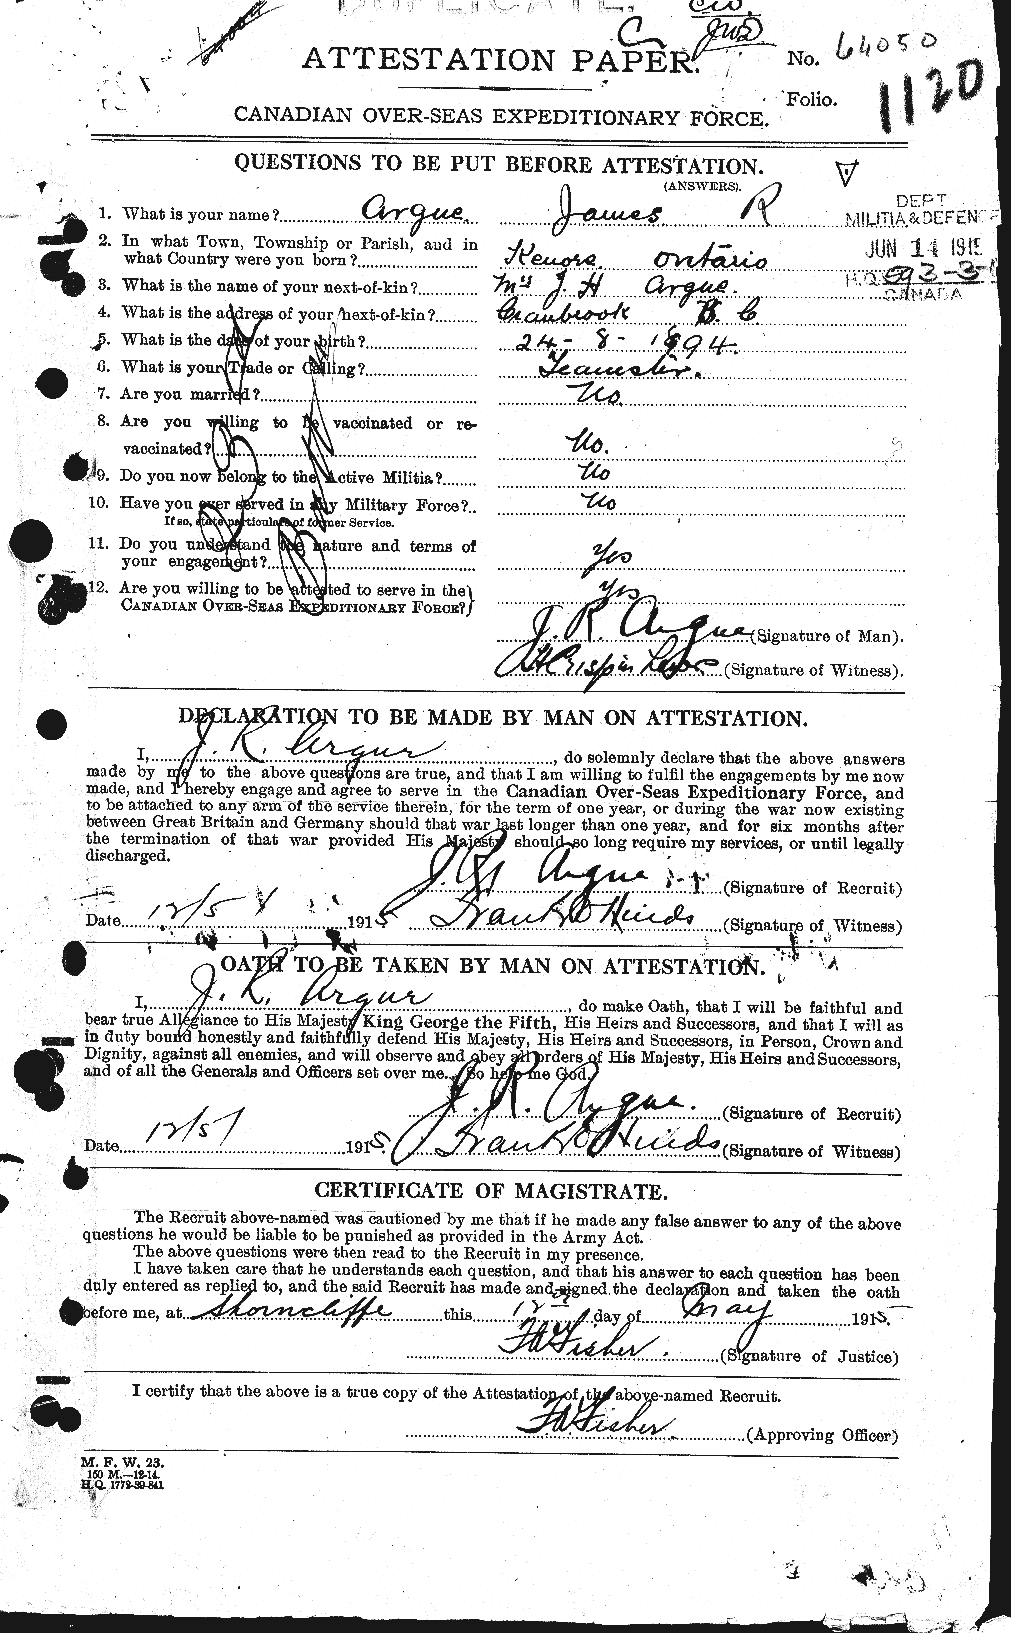 DUPLICATE.
C
ATTESTATION PAPER.
No. 64050
Folio.
1120
CANADIAN OVER-SEAS EXPEDITIONARY FORCE.
QUESTIONS TO BE PUT BEFORE ATTESTATION.
(ANSWERS).
DEPT
MILITIA & DEFENCE
JUN 14 1915
H.Q. 593-3-
CANADA
1. What is your name? Argue James R
2. In what Town, Township or Parish, and in
what Country were you born? Kenora Ontario
3. What is the name of your next-of-kin? Mrs J. H Argue.
4. What is the address of your next-of-kin? Cranbrook B. C.
5. What is the date of your birth? 24 - 8 - 1894.
6. What is your Trade or Calling? Teamster.
7. Are you married? No.
8. Are you willing to be vaccinated or re-
vaccinated? No.
9. Do you now belong to the Active Militia? No
10. Have you ever served in any Military Force? No
If so, state particulars of former Service.
11. Do you understand the nature and terms of
your engagement? Yes
12. Are you willing to be attested to serve in the
CANADIAN OVER-SEAS EXPEDITIONARY FORCE? Yes
J. R. Argue (Signature of Man).
Crispin (Signature of Witness).
DECLARATION TO BE MADE BY MAN ON ATTESTATION.
I, J. R. Argue, do solemnly declare that the above answers
made by me to the above questions are true, and that I am willing to fulfil the engagements by me now
made, and I hereby engage and agree to serve in the Canadian Over-Seas Expeditionary Force, and
to be attached to any arm of the service therein, for the term of one year, or during the war now existing
between Great Britain and Germany should that war last longer than one year, and for six months after
the termination of that war provided His Majesty should so long require my services, or until legally
discharged.
J. R. Argue (Signature of Recruit)
Date 12/5/ 1915 Frank O Hinds (Signature of Witness)
OATH TO BE TAKEN BY MAN ON ATTESTATION.
I, J. R. Argue, do make Oath, that I will be faithful and
bear true Allegiance to His Majesty King George the Fifth, His Heirs and Successors, and that I will as
in duty bound honestly and faithfully defend His Majesty, His Heirs and Successors, in Person, Crown and
Dignity, against all enemies, and will observe and obey all orders of His Majesty, His Heirs and Successors,
and of all the Generals and Officers set over me. So help me God.
J. R. Argue. (Signature of Recruit)
Date 12/5/ 1915. Frank O Hinds (Signature of Witness)
CERTIFICATE OF MAGISTRATE.
The Recruit above-named was cautioned by me that if he made any false answer to any of the above
questions he would be liable to be punished as provided in the Army Act.
The above questions were then read to the Recruit in my presence.
I have taken care that he understands each question, and that his answer to each question has been
duly entered as replied to, and the said Recruit has made and signed the declaration and taken the oath
before me, at Shorncliffe this 12th day of May 1915.
F.A. Fisher. (Signature of Justice)
I certify that the above is a true copy of the Attestation of the above-named Recruit.
F.A. Fisher (Approving Officer)
M. F. W. 23.
150 M.—12-14.
H.Q. 1772-39-841